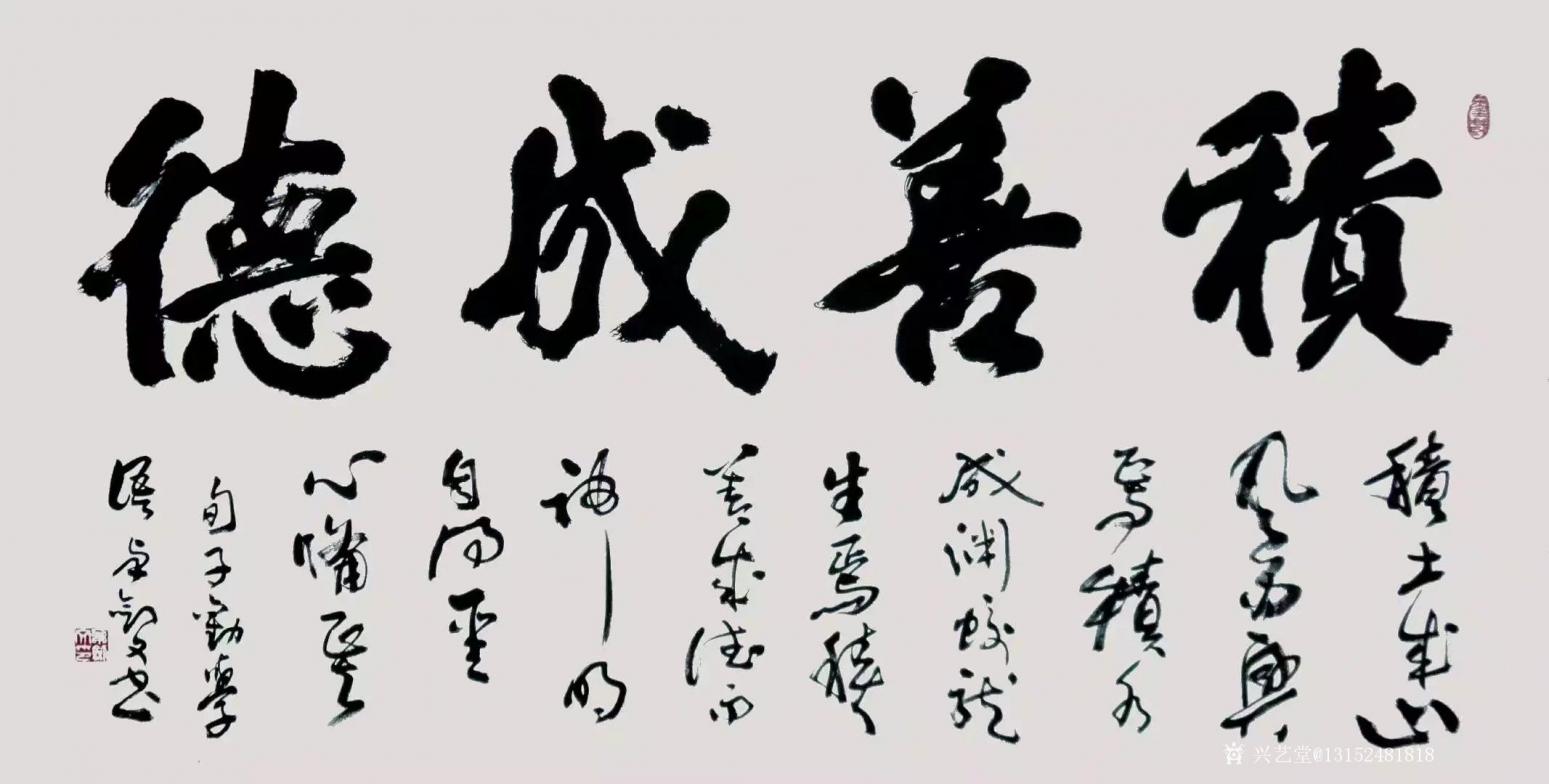 積善成德
積土成山
風雨興
焉積水
成渊蛟龍
生焉積
善成德而
神明
自得聖
心備焉
旬子勸學
語 劍文书
兴艺堂@13152481818